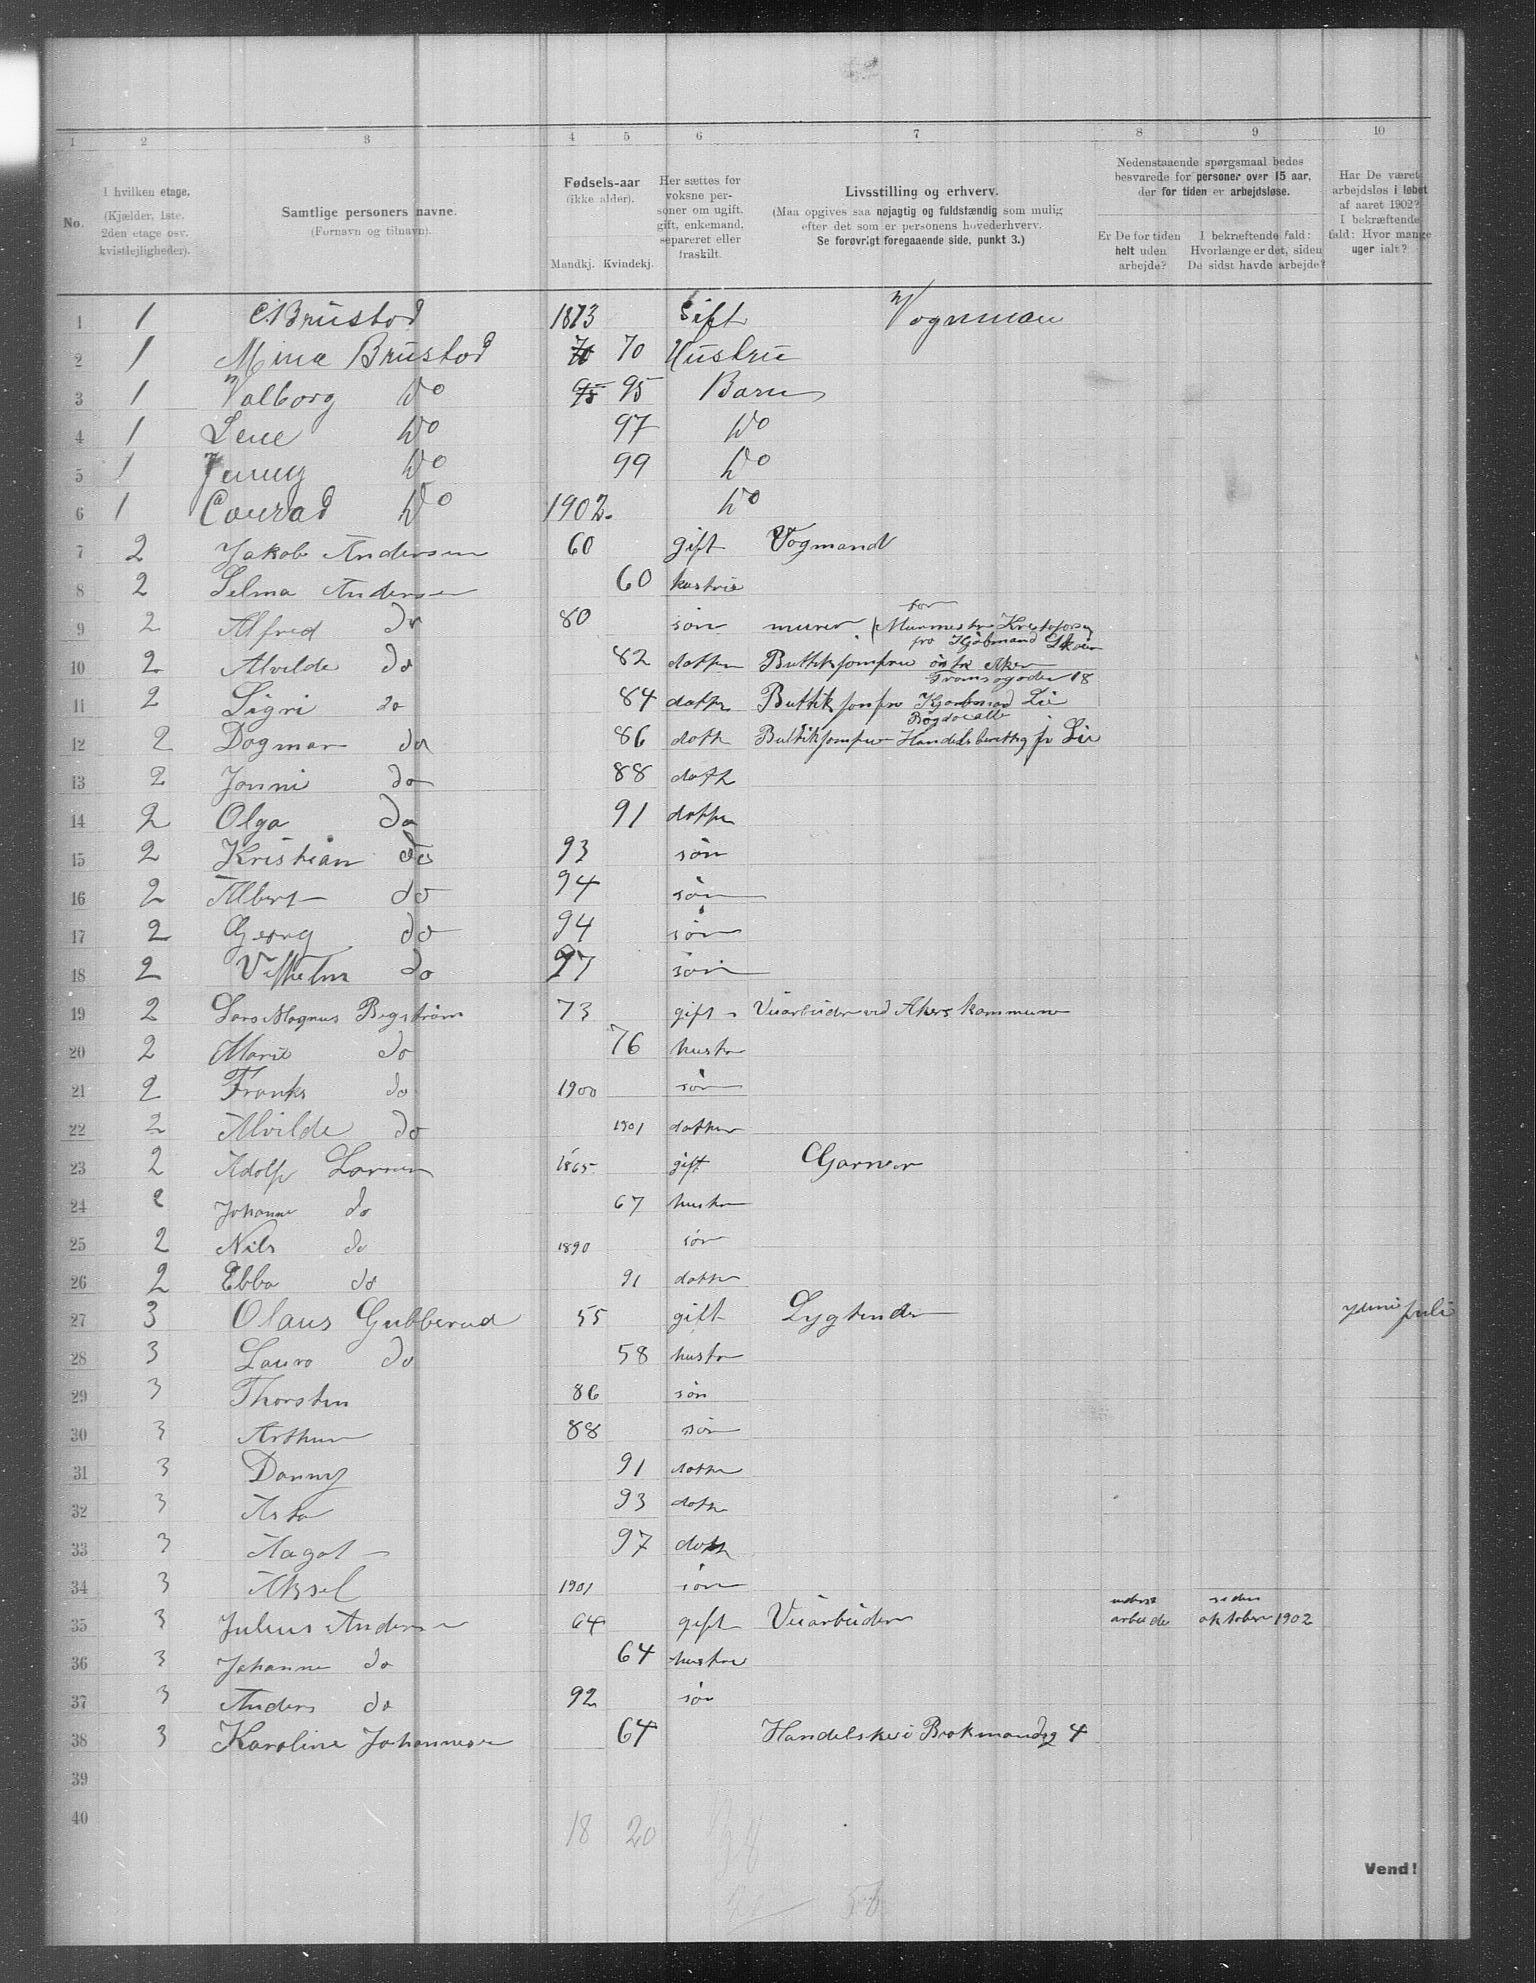 1 2 3 4 5 6 7 8 9 10
No.
I hvilken etage.
(Kjælder, 1ste,
2den etage osv.
kvistlejligheder).
Samtlige personers navne.
(Fornavn og tilnavn).
Fødsels-aar
(ikke alder).
Mandkj. Kvindekj.
Her sættes for
voksne per-
soner om ugift,
gift, enkemand,
separeret eller
fraskilt.
Livsstilling og erhverv.
(Maa opgives saa nøjagtig og fuldstændig som mulig
efter det som er personens hovederhverv.
Se forøvrigt foregaaende side, punkt 3.)
Nedenstaaende spørgsmaal bedes
besvarede for personer over 15 aar,
der for tiden er arbejdsløse.
Er De for tiden
helt uden
arbejde?
I bekræftende fald:
Hvorlænge er det, siden
De sidst havde arbejde?
Har De været
arbejdsløs i løbet
af aaret 1902?
I bekræftende
fald: Hvor mange
uger ialt?
1 1 C Brustod 1873 Gift Vognman
2 1 Mina Brustod 70 70 Hustru
3 1 Valborg Do 95 95 Barn
4 1 Lene Do 97 Do
5 1 Jenny Do 99 Do
6 1 Conrad Do 1902. Do
7 2 Jakob Andersen 60 gift Vogmand
8 2 Selma Andersen 60 hustru
for
9 2 Alfred do 80 søn murer Murmester Kristofersen
10 2 Alvilde do 82 datter Buttikjomfru
18
11 2 Sigri do 84 datter Buttikjomfru Lie
12 2 Dagmar do 86 datt Buttikjomfru Lie
13 2 Jonni do 88 datt
14 2 Olga do 91 datter
15 2 Kristian do 93 søn
16 2 Albert do 94 søn
17 2 Georg do 94 søn
18 2 Vilhelm do 97 søn
19 2 Lars Magnus Bergstrøm 73 gift Veiarbeider ved Akers kommune
20 2 Marie do 76 hustr
21 2 Franks do 1900 søn
22 2 Alvilde do 1901 datter
23 2 Adolf Larsen 1865 gift Garver
24 2 Johanne do 67 hustr
25 2 Nils do 1890 søn
26 2 Ebba do 91 datter
27 3 Olaus Gubberud 55 gift Lygtender juli
28 3 Laura do 58 hustr
29 3 Thorsten 86 søn
30 3 Arthur 88 søn
31 3 Danny 91 datter
32 3 Asta 93 datt
33 3 Aagot 97 datt
34 3 Aksel 1901 søn
siden
35 3 Julius Andersen 64 gift Veiarbeider arbeide oktober 1902
36 3 Johanne do 64 hustru
37 3 Anders do 92 søn
38 3 Karoline Johannesen 64 Brokmandsg 4
39
40
18 20
38
56
Vend!